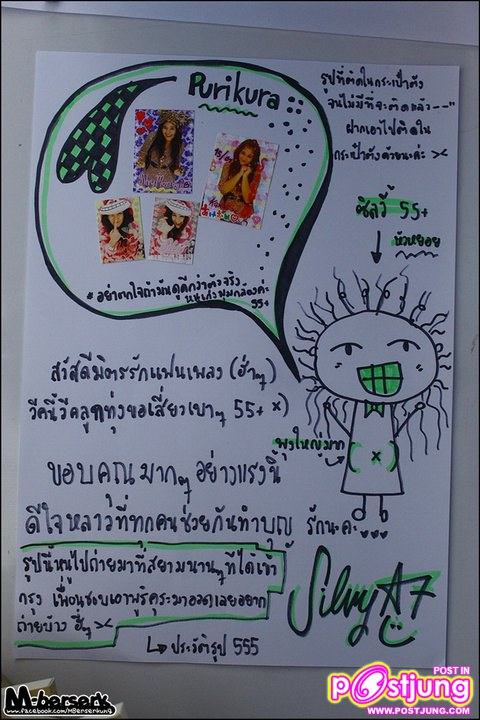 Purikura
รูปที่ติดในกระเป๋าตัง
จนไม่มีที่จะติดแล้ว --"
ฝากเอาไปติดใน
กระเป๋าตังด้วยนะค่ะ ><
ซิลวี่ 55+
หัวหยอย
*อย่าตกใจถ้ามันดูดีกว่าตัวจริง
หนูเก่งมุมกล้องค่ะ
55+
สวัสดีมิตรรักแฟนเพลง (ฮ่าๆ)
วีคนี้วีคลูกทุ่งขอเสี่ยวเบาๆ 55+ x)
พุงใหญ่มาก
(x)
ขอบคุณมากๆ อย่างแรงนี้
ดีใจหลาวที่ทุกคนช่วยกันทำบุญ รักนะคะ
รูปนี้หนูไปถ่ายมาที่สยามนานๆทีได้เข้า
กรุง
ถ่ายบ้าง ฮี่ๆ ><
Silvy AF7
ประวัติรูป 555
M-berserk
www.facebook.com/MBerserkung
POST IN
postjung
WWW.POSTJUNG.COM